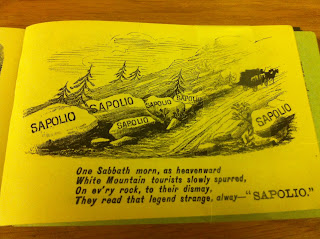 SAPOLIO
SAPOLIO
SAPOLIO
SAPOLIO
SAPOLIO
SAPOLIO
One Sabbath morn, as heavenward
White Mountain tourists slowly spurred,
On ev'ry rock, to their dismay,
They read that legend strange, alway—"SAPOLIO."